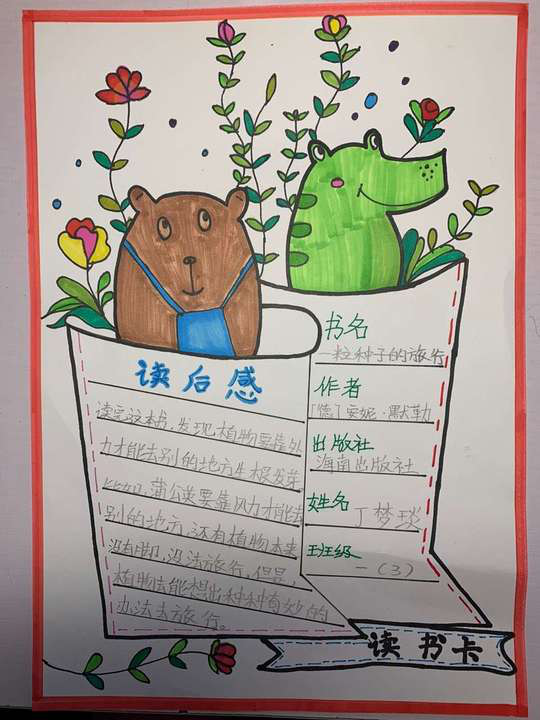 读后感
读完这本书，发现植物要靠外
力才能去别的地方生根发芽
比如，蒲公英要靠风力才能去
别的地方，还有植物本来
没有脚，没法旅行，但是，
植物却能想出种种奇妙的
办法去旅行。
书名
一粒种子的旅行
作者
[德]安妮·默勒
出版社
海南出版社
姓名
丁梦琰
班级
一（3）
读书卡